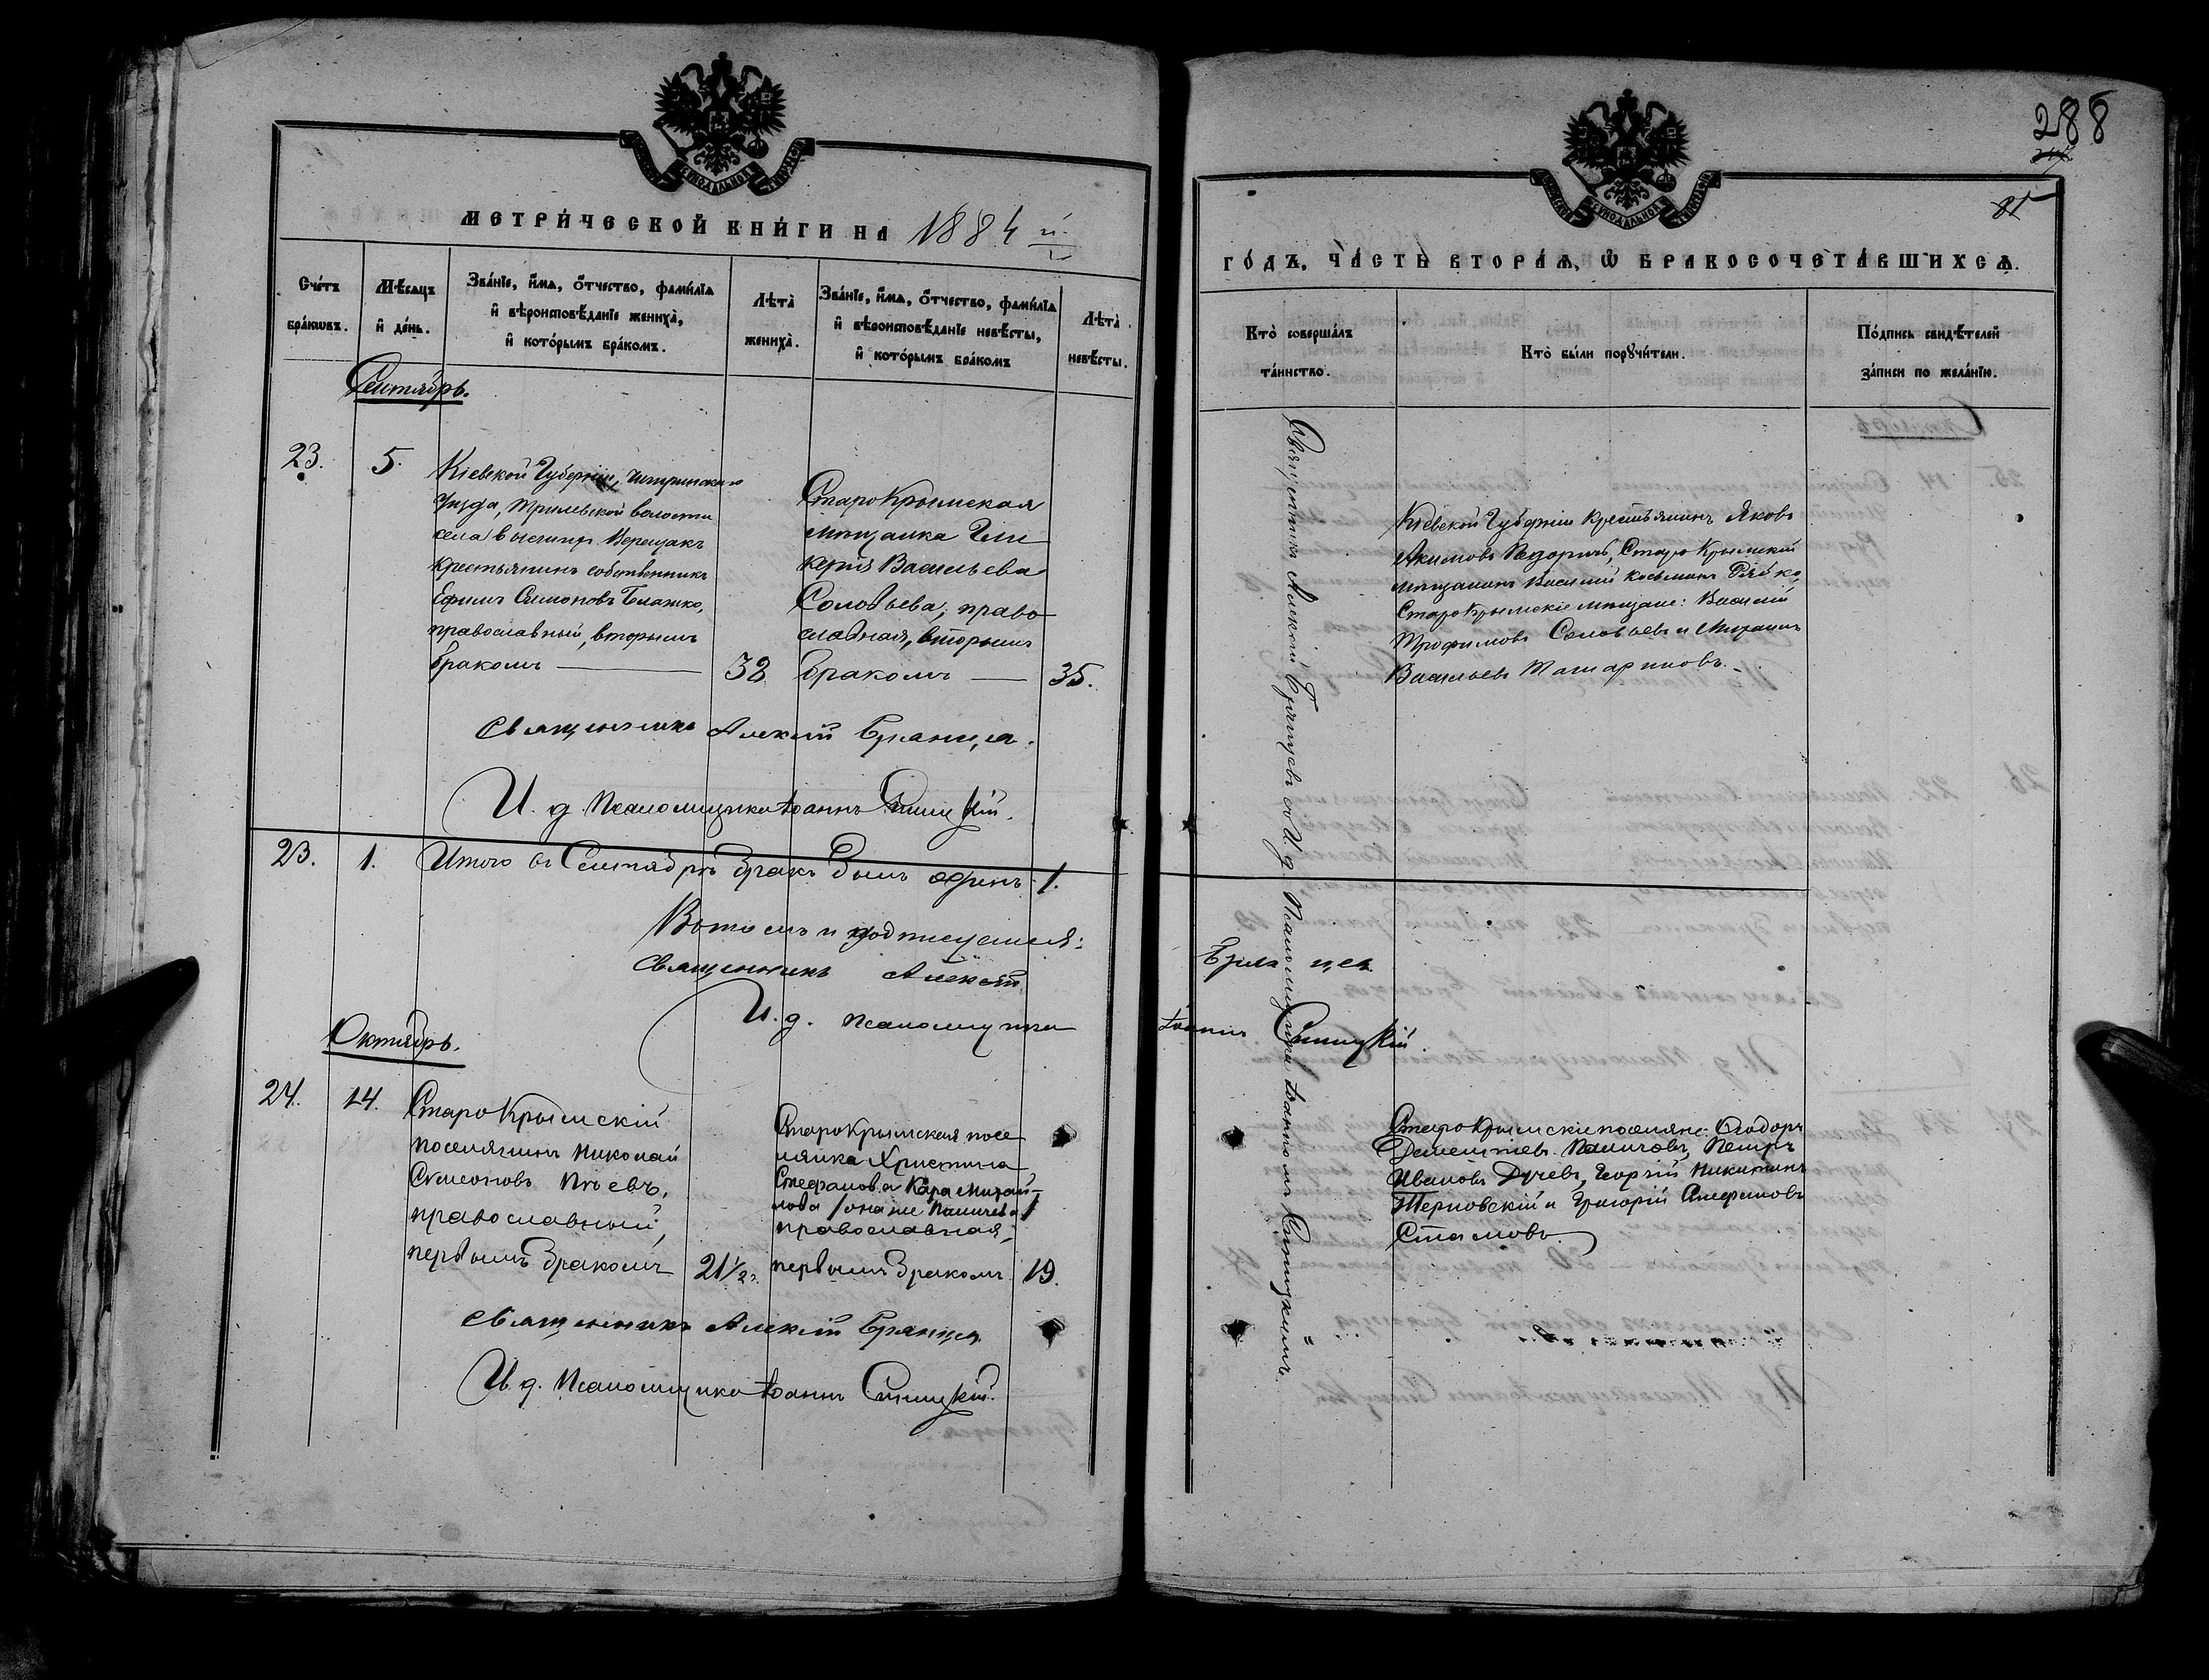 МЕТРИ́ЧЕСКОЙ КНИ́ГИ НА 1884 й
Сче́тъ бра́кωвъ.
Мѣ́сѧцъ и҆ де́нь.
Зва́нїе, и҆́мѧ, ѻ҆́тчество, фами́лїѧ и҆ вѣроисповѣ́данїе жениха̀, и҆ кото́рымъ бра́комъ.
Лѣта̀ жениха̀.
Зва́нїе, и҆́мѧ, ѻ҆́тчество, фами́лїѧ и҆ вѣроисповѣ́данїе невѣ́сты, и҆ кото́рымъ бра́комъ
Лѣта̀ невѣ́сты.
Сентябрь.
23.
5.
Кіевской Губерніи,
Уѣзда, волости
села Верещакъ
крестьянинъ собственникъ
Ефимъ Симоновъ Блажко,
православный, вторымъ
бракомъ
38
Старокрымская
мѣщанка Гли
керія Васильева
Соловьева, право
славная, вторымъ
бракомъ
35.
Священникъ Алексій Брянцевъ.
И. д. Псаломщика Іоаннъ Синицкій.
23.
1.
Итого въ Сентябрѣ бракъ былъ одинъ 1.
Въ томъ и подписуемся:
Священникъ Алексій
И. д. псаломщика
Октябрь.
24.
14.
Старо Крымскій
поселянинъ Николай
Симеоновъ
православный,
первымъ бракомъ
21 1/2
Старокрымская посе
лянка Христина
Стефанова Кара Михай-
лова /она же Паничева/
православная,
первымъ бракомъ
19.
Священникъ Алексій Брянцевъ
И. д. Псаломщика Іоаннъ Синицкій.
288
81
ГО́ДЪ, ЧА́СТЬ ВТОРА́Ѧ, Ѡ҆ БРАКОСОЧЕТА́ВШИХСѦ.
Кто̀ соверша́лъ та́инство.
Кто̀ бы́ли порꙋчи́тели.
По́дпись свидѣ́телей за́писи по жела́нїю.
Священникъ Алексій Брянцевъ съ И. д. Псаломщика Іоанномъ Синицкимъ.
Кіевской Губерніи крестьянинъ Яковъ
Акимовъ Старо Крымскій
мѣщанинъ Василій Косьминъ Рябко,
Старо Крымскіе мѣщане: Василій
Трофимовъ Соловьевъ и Михаилъ
Васильевъ Татариновъ.
Брянцевъ
Іоаннъ Синицкій.
Старо Крымскіе поселяне: Ѳеодоръ
Дементіевъ Паничовъ, Петръ
Ивановъ Дучевъ, Георгій Никитинъ
Терновскій и Григорій Стефановъ
Стамовъ.